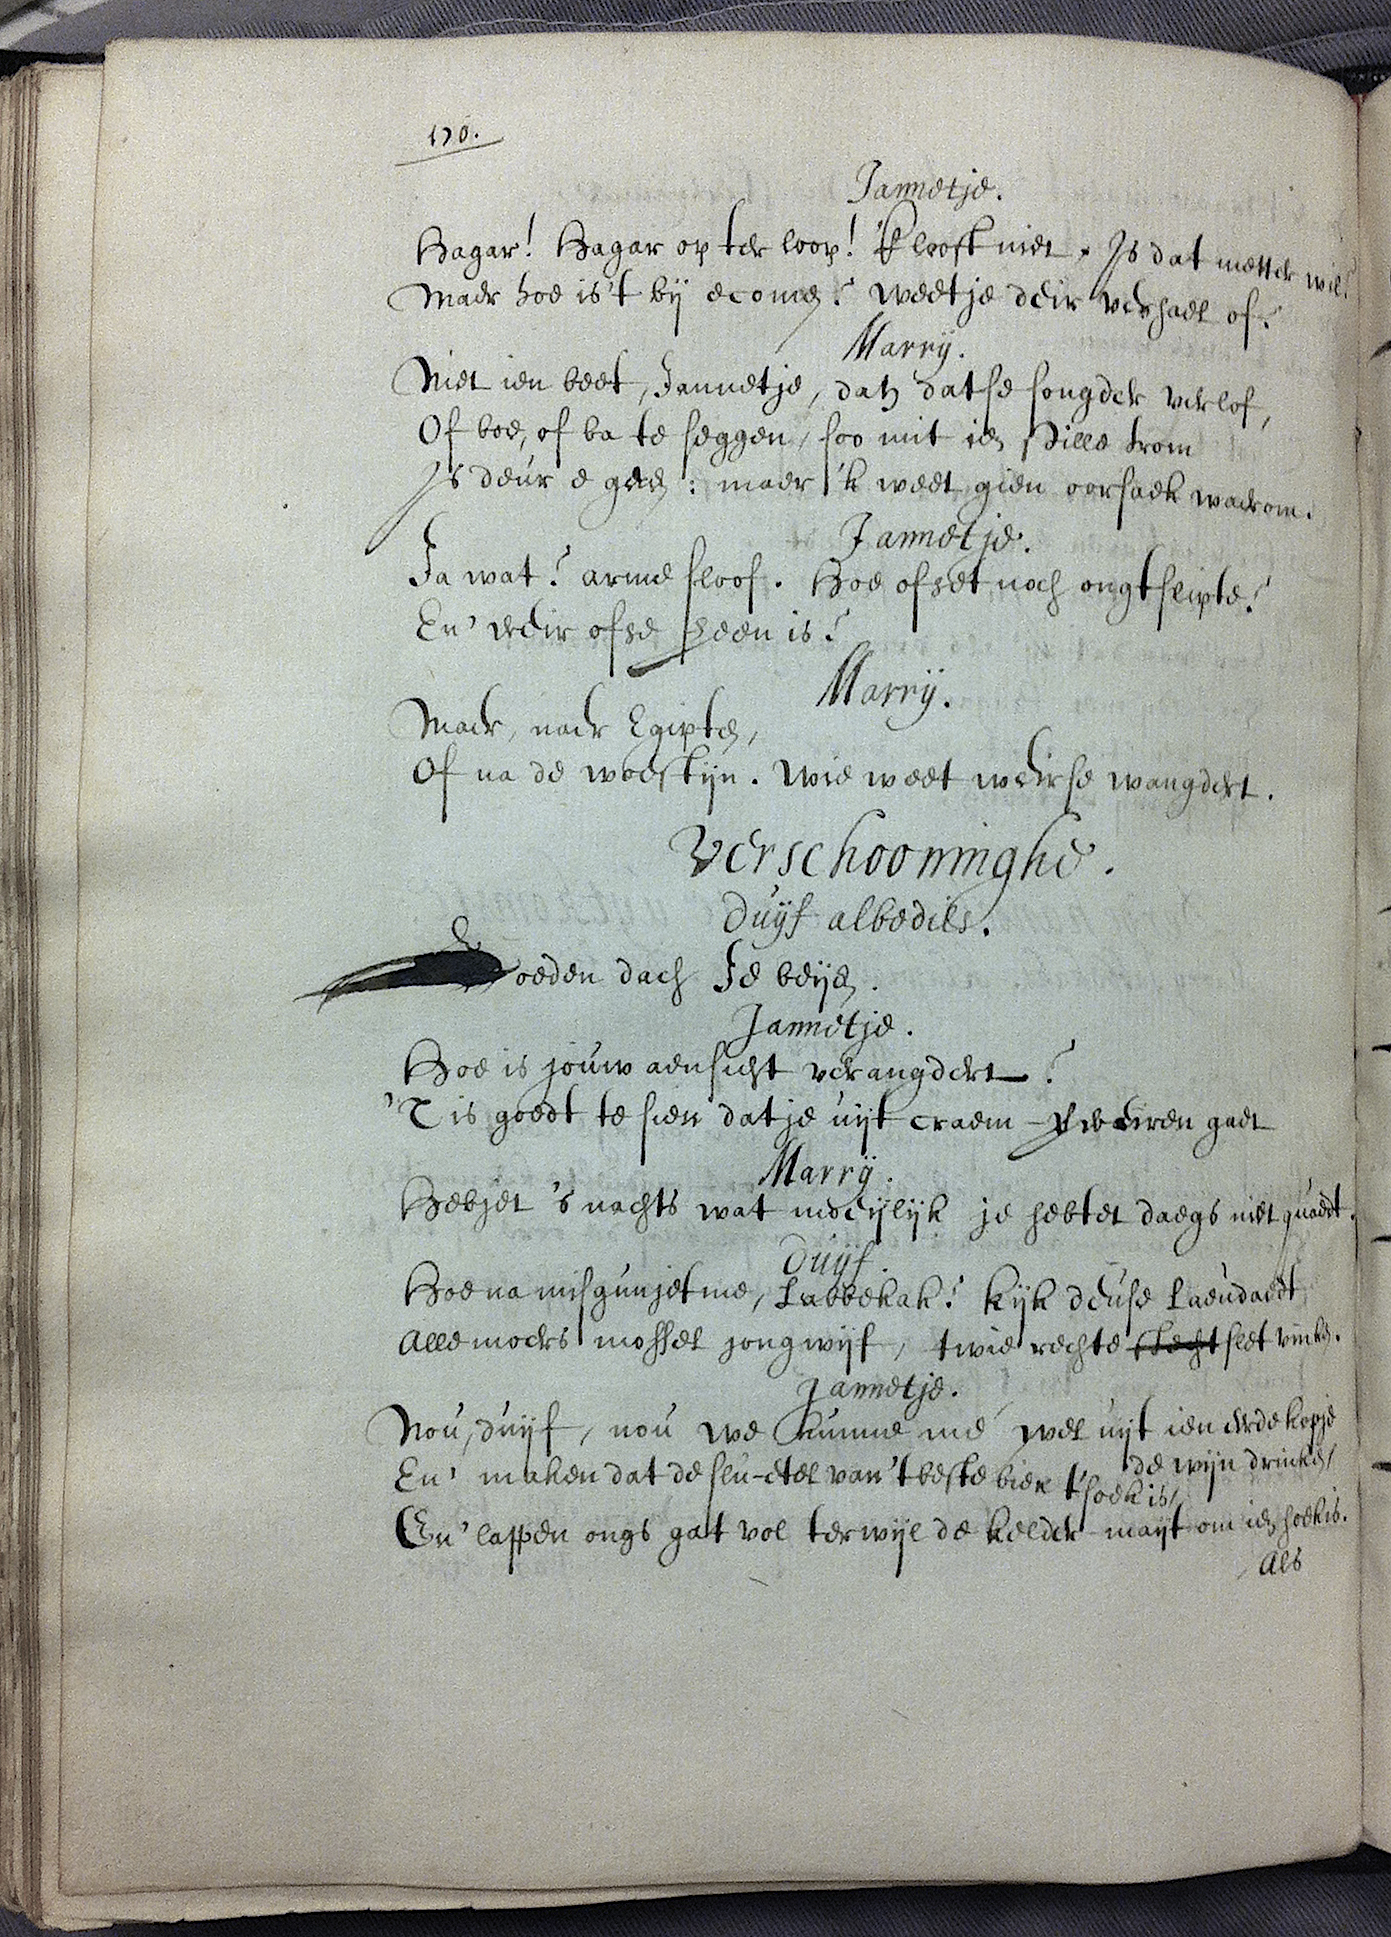 170.
Jannetje.
Hagar! Hagar op ter loop! 'k looft niet. Is dat metter wil?
Maer hoe is't bij ecomen? weetje deir verhael of?
Marrij.
Niet ien beet, Jannetje, dan datse songder verlof,
Of boe, of ba te seggen, soo mit ien stille trom
Is deur e gaen: maer 'k weet gien oorsaek waerom.
Jannetje.
Ja wat? arme sloof. Hoe ofset noch ongtslipte?
En' weir ofse heen is?
Marrij.
Maer, naer Egipten,
Of na de woestijn. Wie weet weirse wangdert.
Verschooninghe.
Duijf albedils.
Goeden dach Je beijen.
Jannetje.
Hoe is jouw aensicht verangdert?
'T is goedt te sien datje uijt craem-weiren gaet
Marrij.
Hebjet 's nachts wat moeijlijk je hebtet daegs niet quaedt.
Duijf.
Hoe na misgunjetme, Labbekak? kijk deuse Laeudaedt
Allemoers mossel jongwijf, twie rechte slet vinken.
Jannetje.
Nou, duijf, nou we kunne me wel uijt ien eerdekopje
de wijn drinken,
En' maken dat de slu-etel van't beste bier t'soek is,
En' lappen ongs gat vol terwijl de kelder-maijt om ien hoekis.
Als